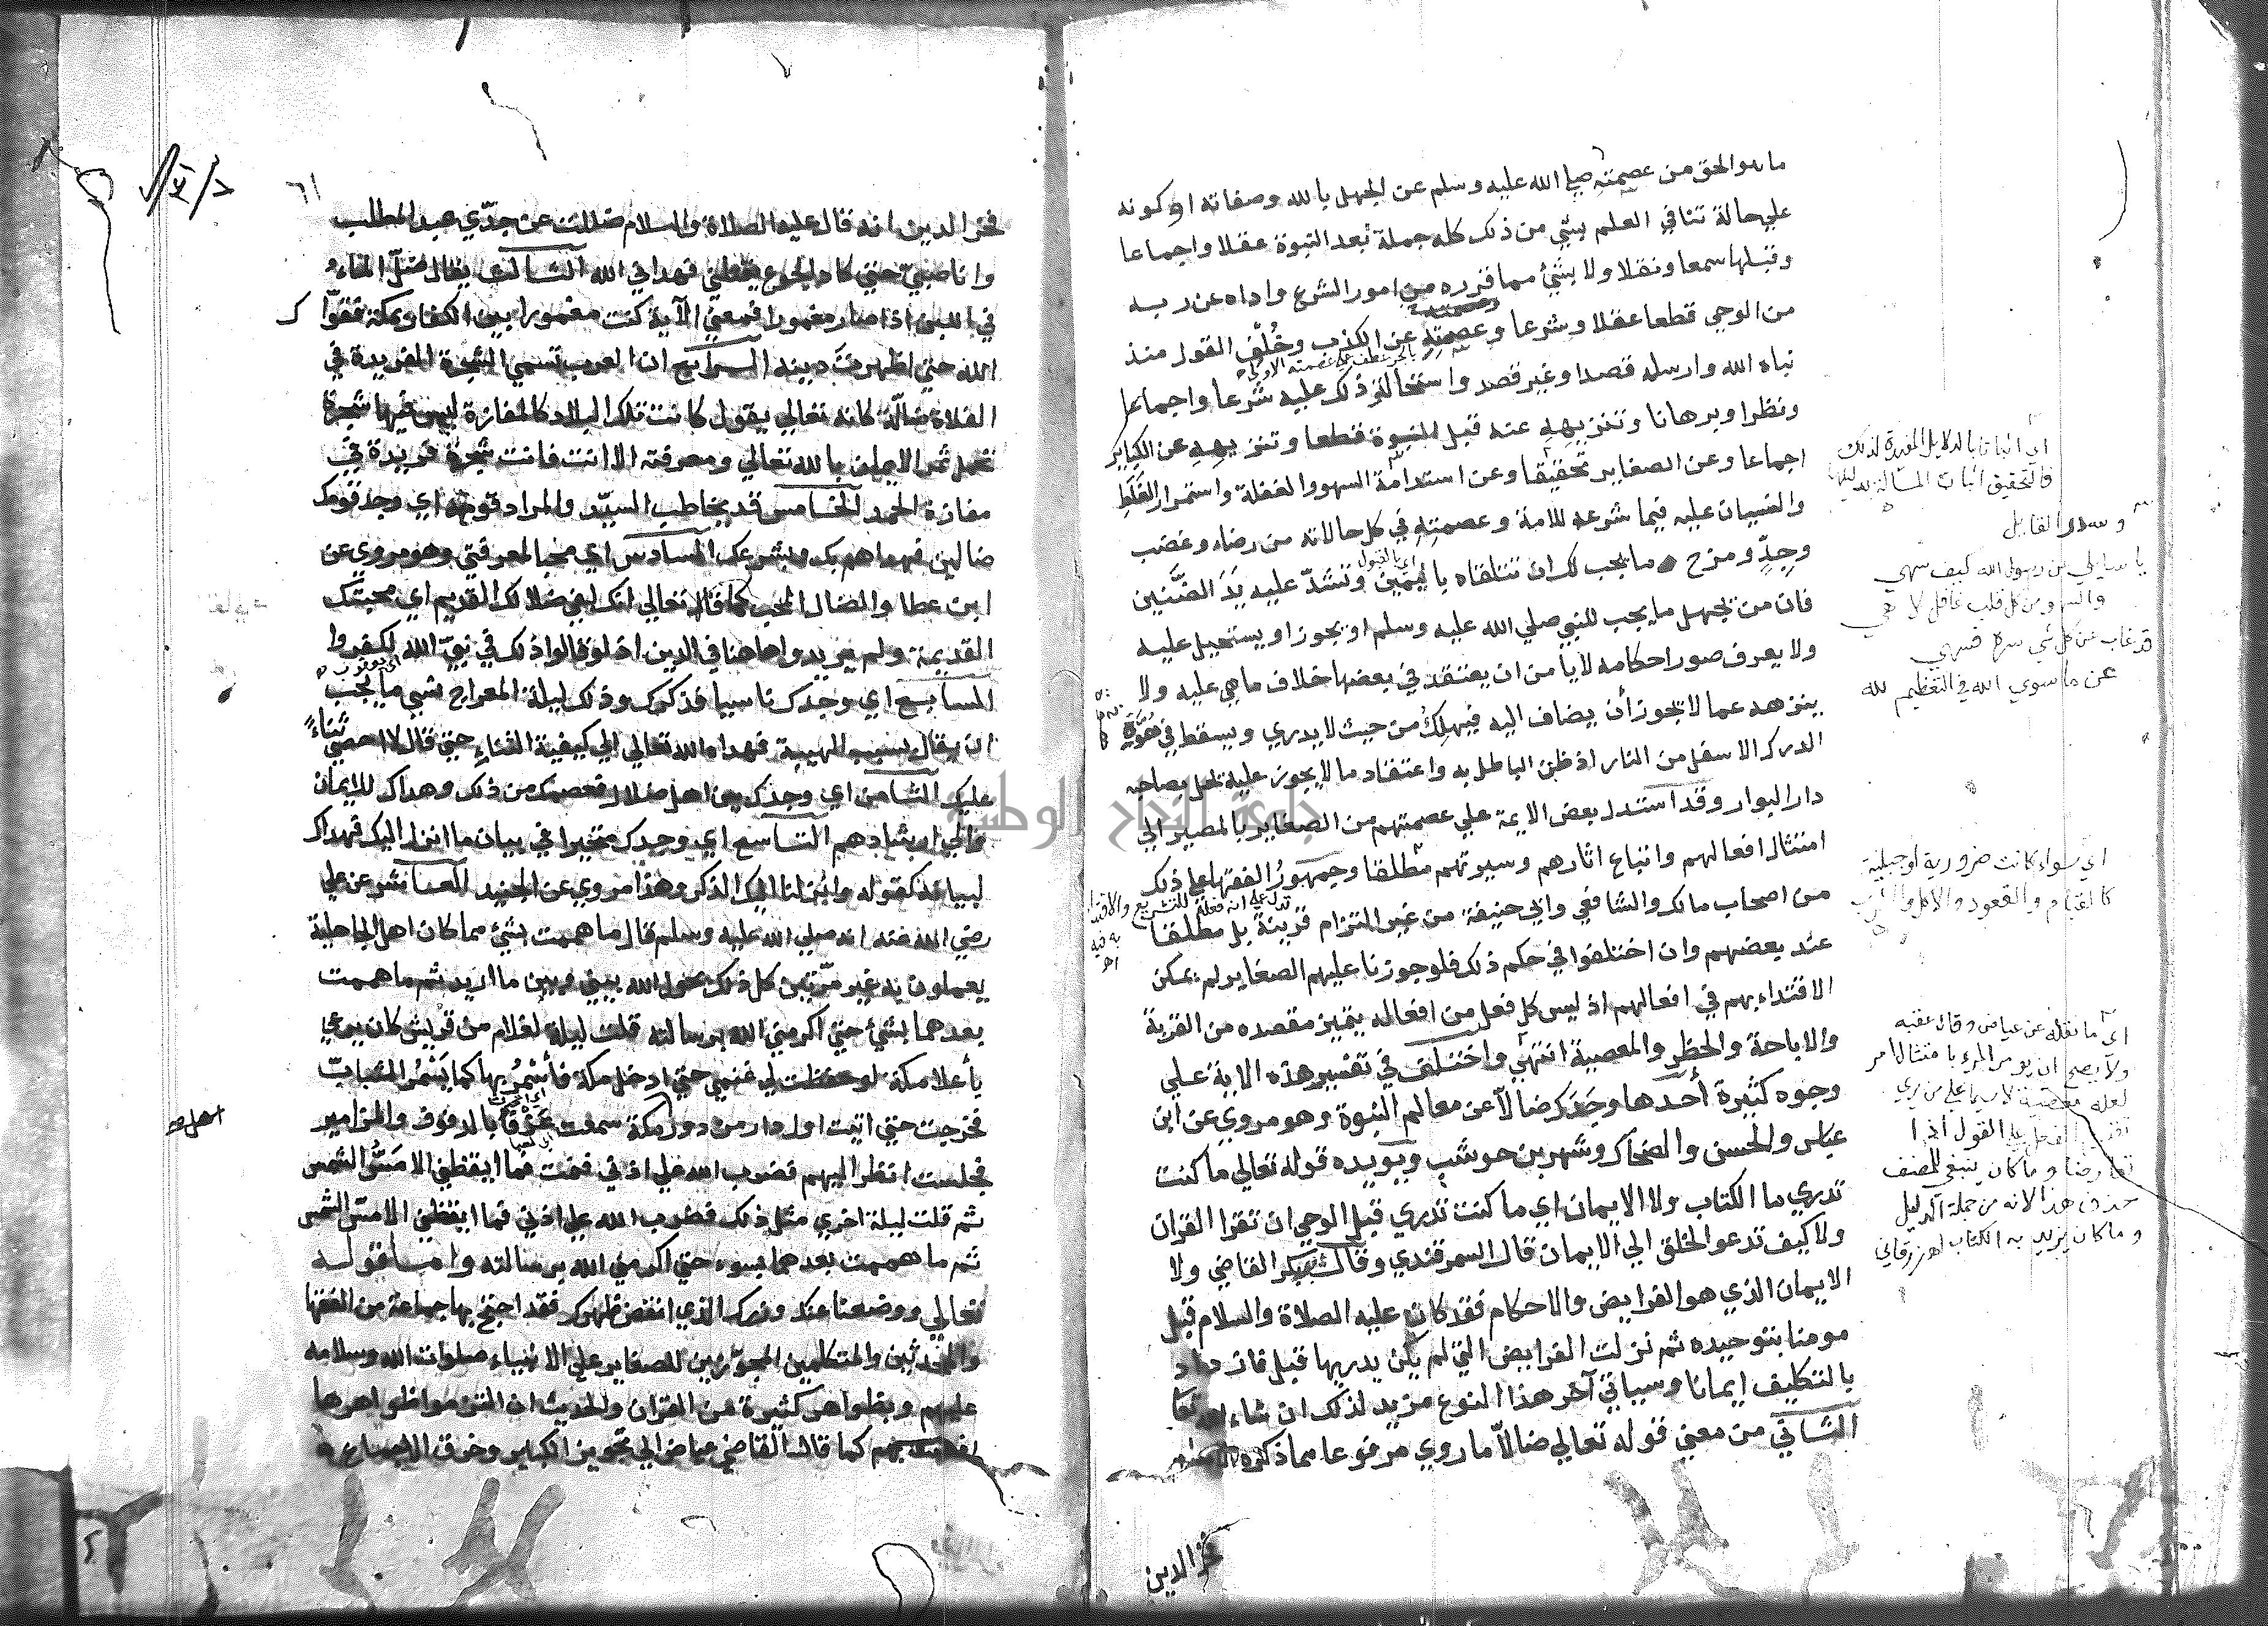 ما هو الحق من عصمته صلي الله عليه وسلم عن الجهل بالله وصفاته او كونه
علي حالة تنافي العلم بشي من ذلك كله جملة بعد النبوة عقلا واجماعا
وقبلها سمعا ونقلا ولا بشئ مما قرره من امور الشرع واداه عن ربه
من الوحي قطعا عقلا وشرعا وعصمته عن الكذب وخُلْف القول منذ
بالجر عطف علي عصمته الاولي
نباه الله وارسله قصدا وغير قصد واستحالة ذلك عليه شرعا واجماعا
ونظرا وبرهانا وتنزيهه عنه قبل النبوة قطعا وتنزيهه عن الكباير
اجماعا وعن الصغاير تحقيقا وعن استدامة السهو والغفلة واستمرار الغلط
والنسيان عليه فيما شرعه للامة وعصمته في كل حالاته من رضاء وغضب
وجِدٍّ ومزح ما يجب لك ان تتلقاه باليمين وتشدّ عليه يَدَ الضَّنين
اي بالقبول
فان من يجهل ما يجب للنبي صلي الله عليه وسلم او يجوز او يستحيل عليه
ولا يعرف صور احكامه لا يامن ان يعتقد في بعضها خلاف ما هي عليه ولا
ينزهه عما لا يجوز أن يضاف اليه فيهلك من حيث لا يدري ويسقط في هُوّة
الدرك الاسفل من النار اذ ظن الباطل به واعتقاد ما لا يجوز عليه يحل بصاحبه
دار البوار وقد استدل بعض الايمة علي عصمتهم من الصغاير بالمصير الي
امتثال افعالهم واتباع اثارهم وسيرتهم مطلقا وجمهورُ الفقها علي ذلك
من اصحاب مالك والشافعي وابي حنيفة من غير التزام قرينة بل مطلقا
تدل علي انه فعله للتشريع والاقتداء
به فيه
اهـ
عند بعضهم وان اختلفوا في حكم ذلك فلو جوزنا عليهم الصغاير لم يمكن
الاقتداء بهم في افعالهم اذ ليس كل فعل من افعاله يتميز مقصده من القربة
والاباحة والحظر والمعصية انتهي واختلف في تفسير هذه الاية علي
وجوه كثيرة أحدها وجدك ضالاّ عن معالم النبوة وهو مروي عن ابن
عباس والحسن والضحاك وشهر بن حوشب ويويده قوله تعالي ما كنت
تدري ما الكتاب ولا الايمان اي ما كنت تدري قبل الوحي ان تقرا القران
ولا كيف تدعو الخلق الي الايمان قال السمرقندي وقال بكر القاضي ولا
الايمان الذي هو الفرايض والاحكام فقد كان عليه الصلاة والسلام قبل
مومنا بتوحيده ثم نزلت الفرايض التي لم يكن يدريها قبل فازداد
بالتكليف إيمانا وسياتي آخر هذا النوع مزيد لذلك ان شاء الله تعالي
الثاني من معني قوله تعالي ضالاّ ما روي مرفوعا مما ذكره الامام
فخر الدين
اي اثباتا بالدلايل المقررة لذلك
فالتحقيق اثبات المسالة بدليلها
القايل
يا سايلي عن رسول الله كيف سهي
والسهو من كل قلب غافل لاهي
قد غاب عن كل شي سره فسهي
عن ما سوي الله في التعظيم لله
اي سواء كانت ضرورية او جبلية
كالقيام والقعود والاكل والشرب
اي ما نقله عن عياض وقال عقبه
ولا يصح ان يومر المرء بامتثال امر
لعله معصية لا سيما علي من يري
الفعل علي القول اذا
تعارضا وما كان ينبغي للمصنف
حذف هذا لانه من جملة الدليل
وما كان يزيد به الكتاب اهـ زرقاني
٦١
فخر الدين انه قال عليه الصلاة والسلام ضللت عن جدّي عبد المطلب
وانا صبيّ حتي كاد الجوع يقتلني فهداني الله الثالث يقال ضلّ الماء
في اللبن اذا صار مغمورا فمعني الآية كنت مغمورا بين الكفار بمكة فقوّاك
الله حتي اظهرت دينه الرابع ان العرب تسمي الشجرة الفريدة في
الفلاة ضالّة كانه تعالي يقول كانت تلك البلاد كالمفازة ليس فيها شجرة
تحمل ثمر الايمان بالله تعالي ومعرفته الا انت فانت شجرة فريدة في
مفازة الحمد الخامس قد يخاطب السيّد والمراد قومه اي وجد قومك
ضالين فهداهم بك وبشرعك السادس اي محبا لمعرفتي وهو مروي عن
ابن عطا والضال المحب كما قال تعالي انك لفي ضلالك القديم اي محبتك
القديمة ولم يريدوا هاهنا في الدين اذ لو قالوا ذلك في نبيّ الله لكفروا
اي يعقوب
السابع اي وجدك ناسيا فذكرك وذلك ليلة المعراج نسي ما يجب
ان يقال بسبب الهيبة فهداه الله تعالي الي كيفية الثناء حتي قال لا احصي ثناءً
عليك الثامن اي وجدك بين اهل ضلال فعصمك من ذلك وهداك للايمان
والي ارشادهم التاسع اي وجدك متحيرا في بيان ما انزل اليك فهداك
لبيانه كقوله وانزلنا اليك الذكر وهذا مروي عن الجنيد العاشر عن علي
رضي الله عنه انه صلي الله عليه وسلم قال ما هممت بشئ مما كان اهل الجاهلية
يعملون به غير مرّتين كل ذلك يحول الله بيني وبين ما اريد ثم ما هممت
بعدهما بشئ حتي اكرمني الله برسالته قلت ليلة لغلام من قريش كان يرعي
بأعلا مكة لو حفظت لي غنمي حتي ادخل مكة فأسْمُر بها كما يَسْمُر الشباب
فخرجت حتي اتيت اول دار من دور مكة سمعت عَزْفًا بالدفوف والمزامير
اهل صـ
فجلست انظر اليهم فضرب الله علي اذني فنمت فما ايقظني الا مَسُّ الشمس
ثم قلت ليلة اخري مثل ذلك فضرب الله علي اذني فما ايقظني الا مسّ الشمس
ثم ما هممت بعدهما بسوء حتي اكرمني الله برسالته واما قوله
تعالي ووضعنا عنك وزرك الذي انقض ظهرك فقد احتج بها جماعة من الفقها
والمحدثين والمتكلمين المجوّزين للصغاير علي الانبياء صلوات الله وسلامه
عليهم وبظواهر كثيرة من القران والحديث ان التزموا ظواهرها
افضت بهم كما قال القاضي عياض الي تجويز الكباير وخرق الاجماع
جامعة النجاح الوطنية